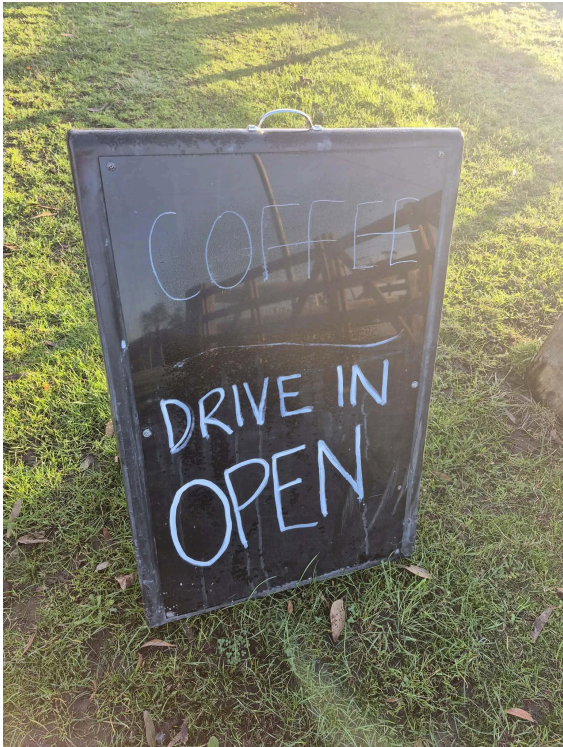 COFFEE
DRIVE IN
OPEN